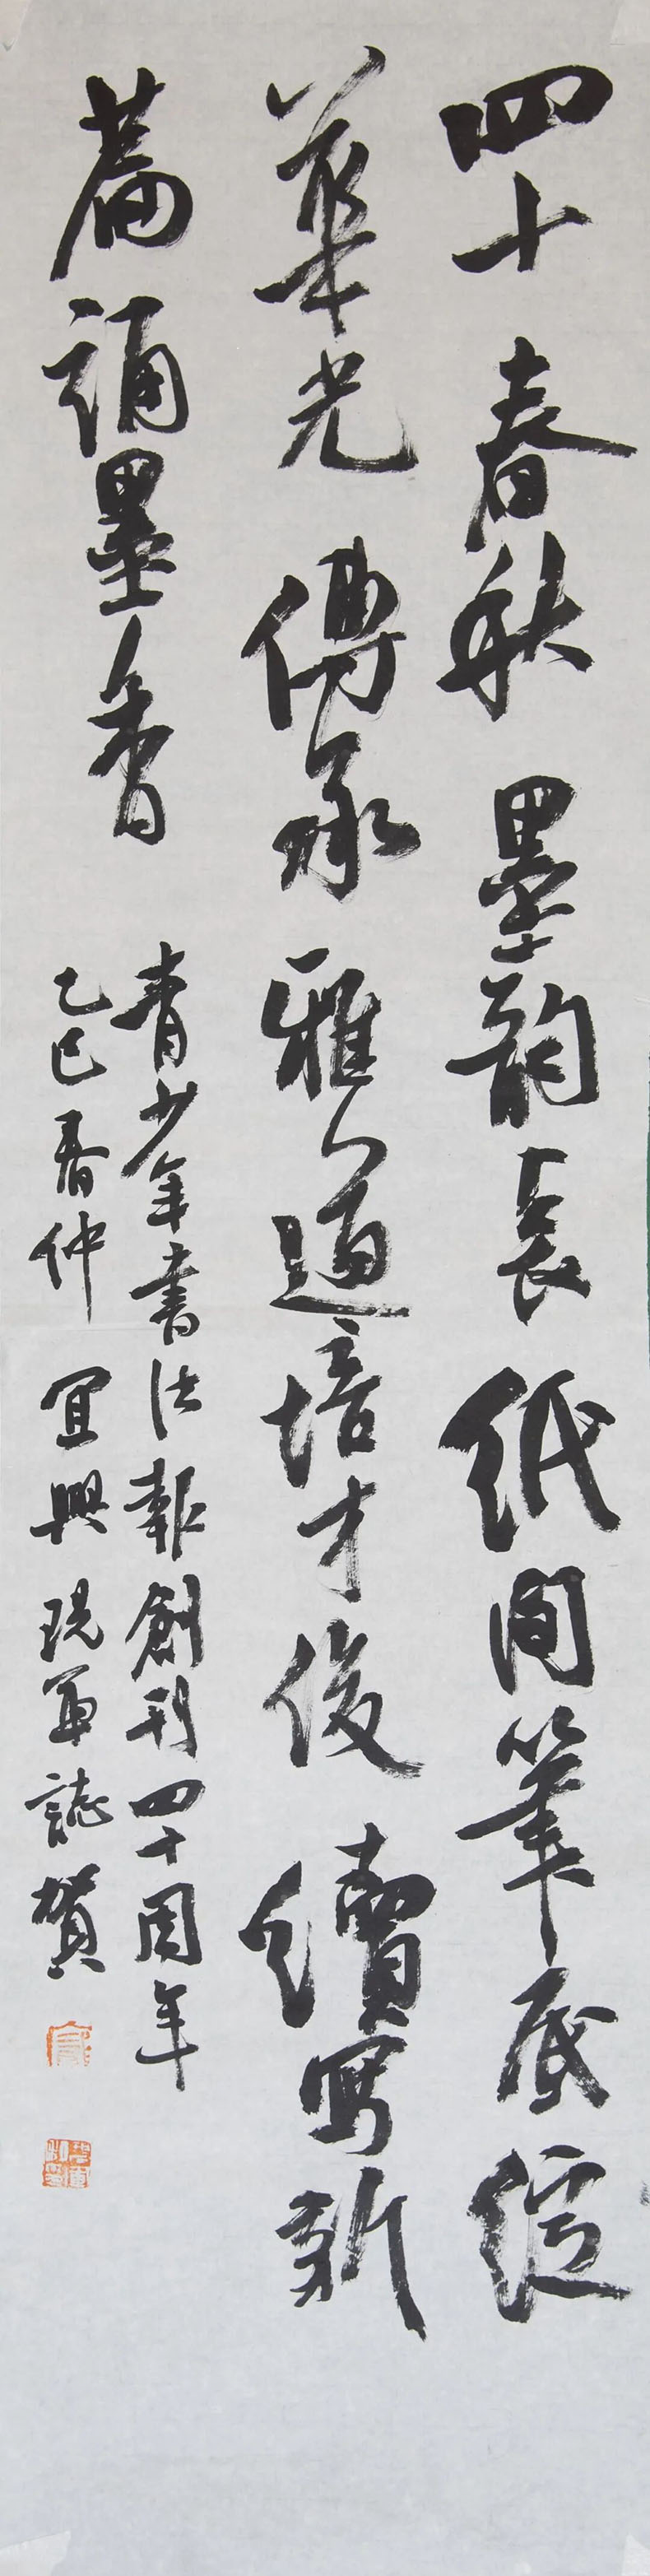 四十春秋墨韻長紙間筆底綻
華光傳承雅道培才俊續寫新
篇誦墨香
青少年書法報創刊四十周年
乙巳春仲宜興現軍誌賀